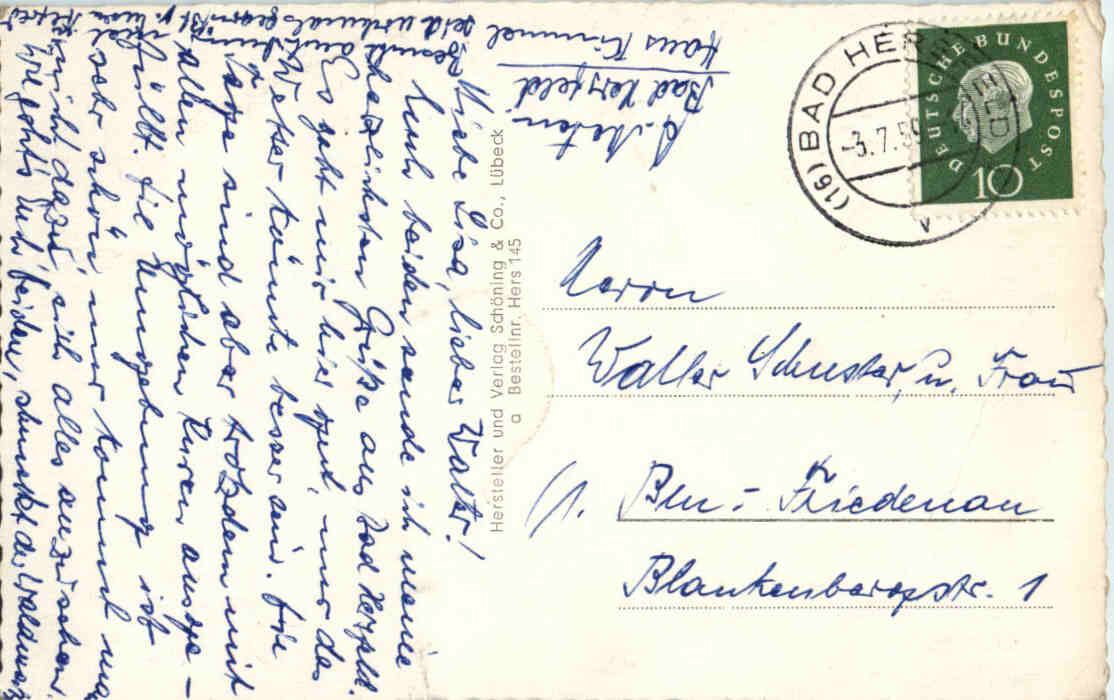 Liebe Lisa, lieber Walter!
Euch beiden sende ich meine
herzlichsten Grüße aus Bad Hersfeld.
Es geht mir hier gut, nur das
Wetter könnte besser sein. Die
Tage sind aber trotzdem mit
allen möglichen Kuren ausge-
füllt. Die Umgebung ist
sehr schön nur kommt man
nicht dazu, sich alles anzusehen.
Wie geht's Euch beiden, schmeckt der Waldmeister
Abs.
Hans Kimmel
Bad Hersfeld
Hersteller und Verlag Schöning & Co., Lübeck
a Bestellnr. Hers 145
(16) BAD HERSFELD
-3.7.59
v
DEUTSCHE BUNDESPOST
10
Herrn
Walter Schuster u. Frau
(1. Bln.- Friedenau
Blankenbergstr. 1